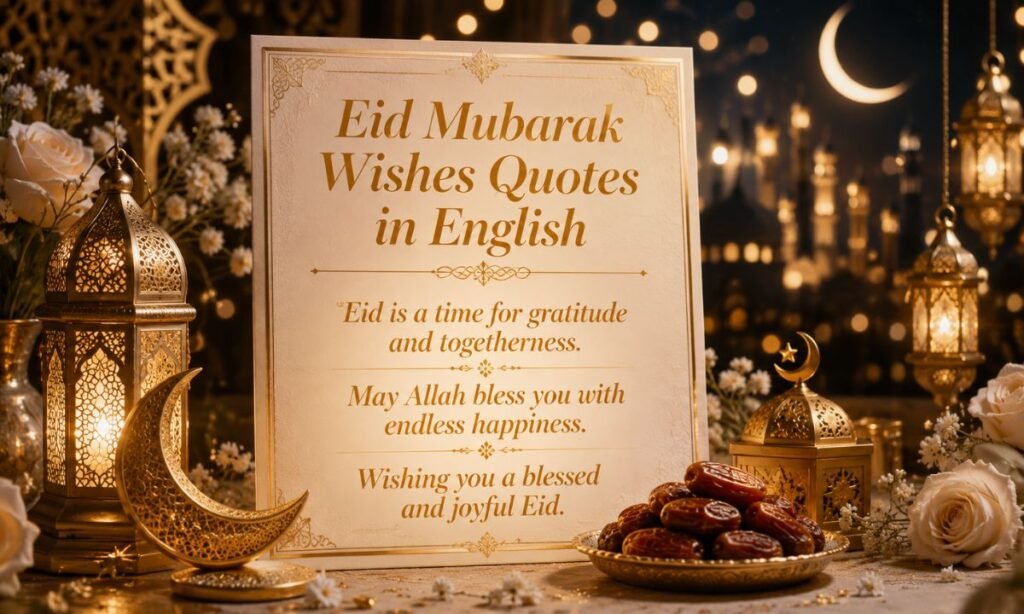 Eid Mubarak
Wishes Quotes
in English
"Eid is a time for gratitude
and togetherness.
May Allah bless you with
endless happiness.
Wishing you a blessed
and joyful Eid.